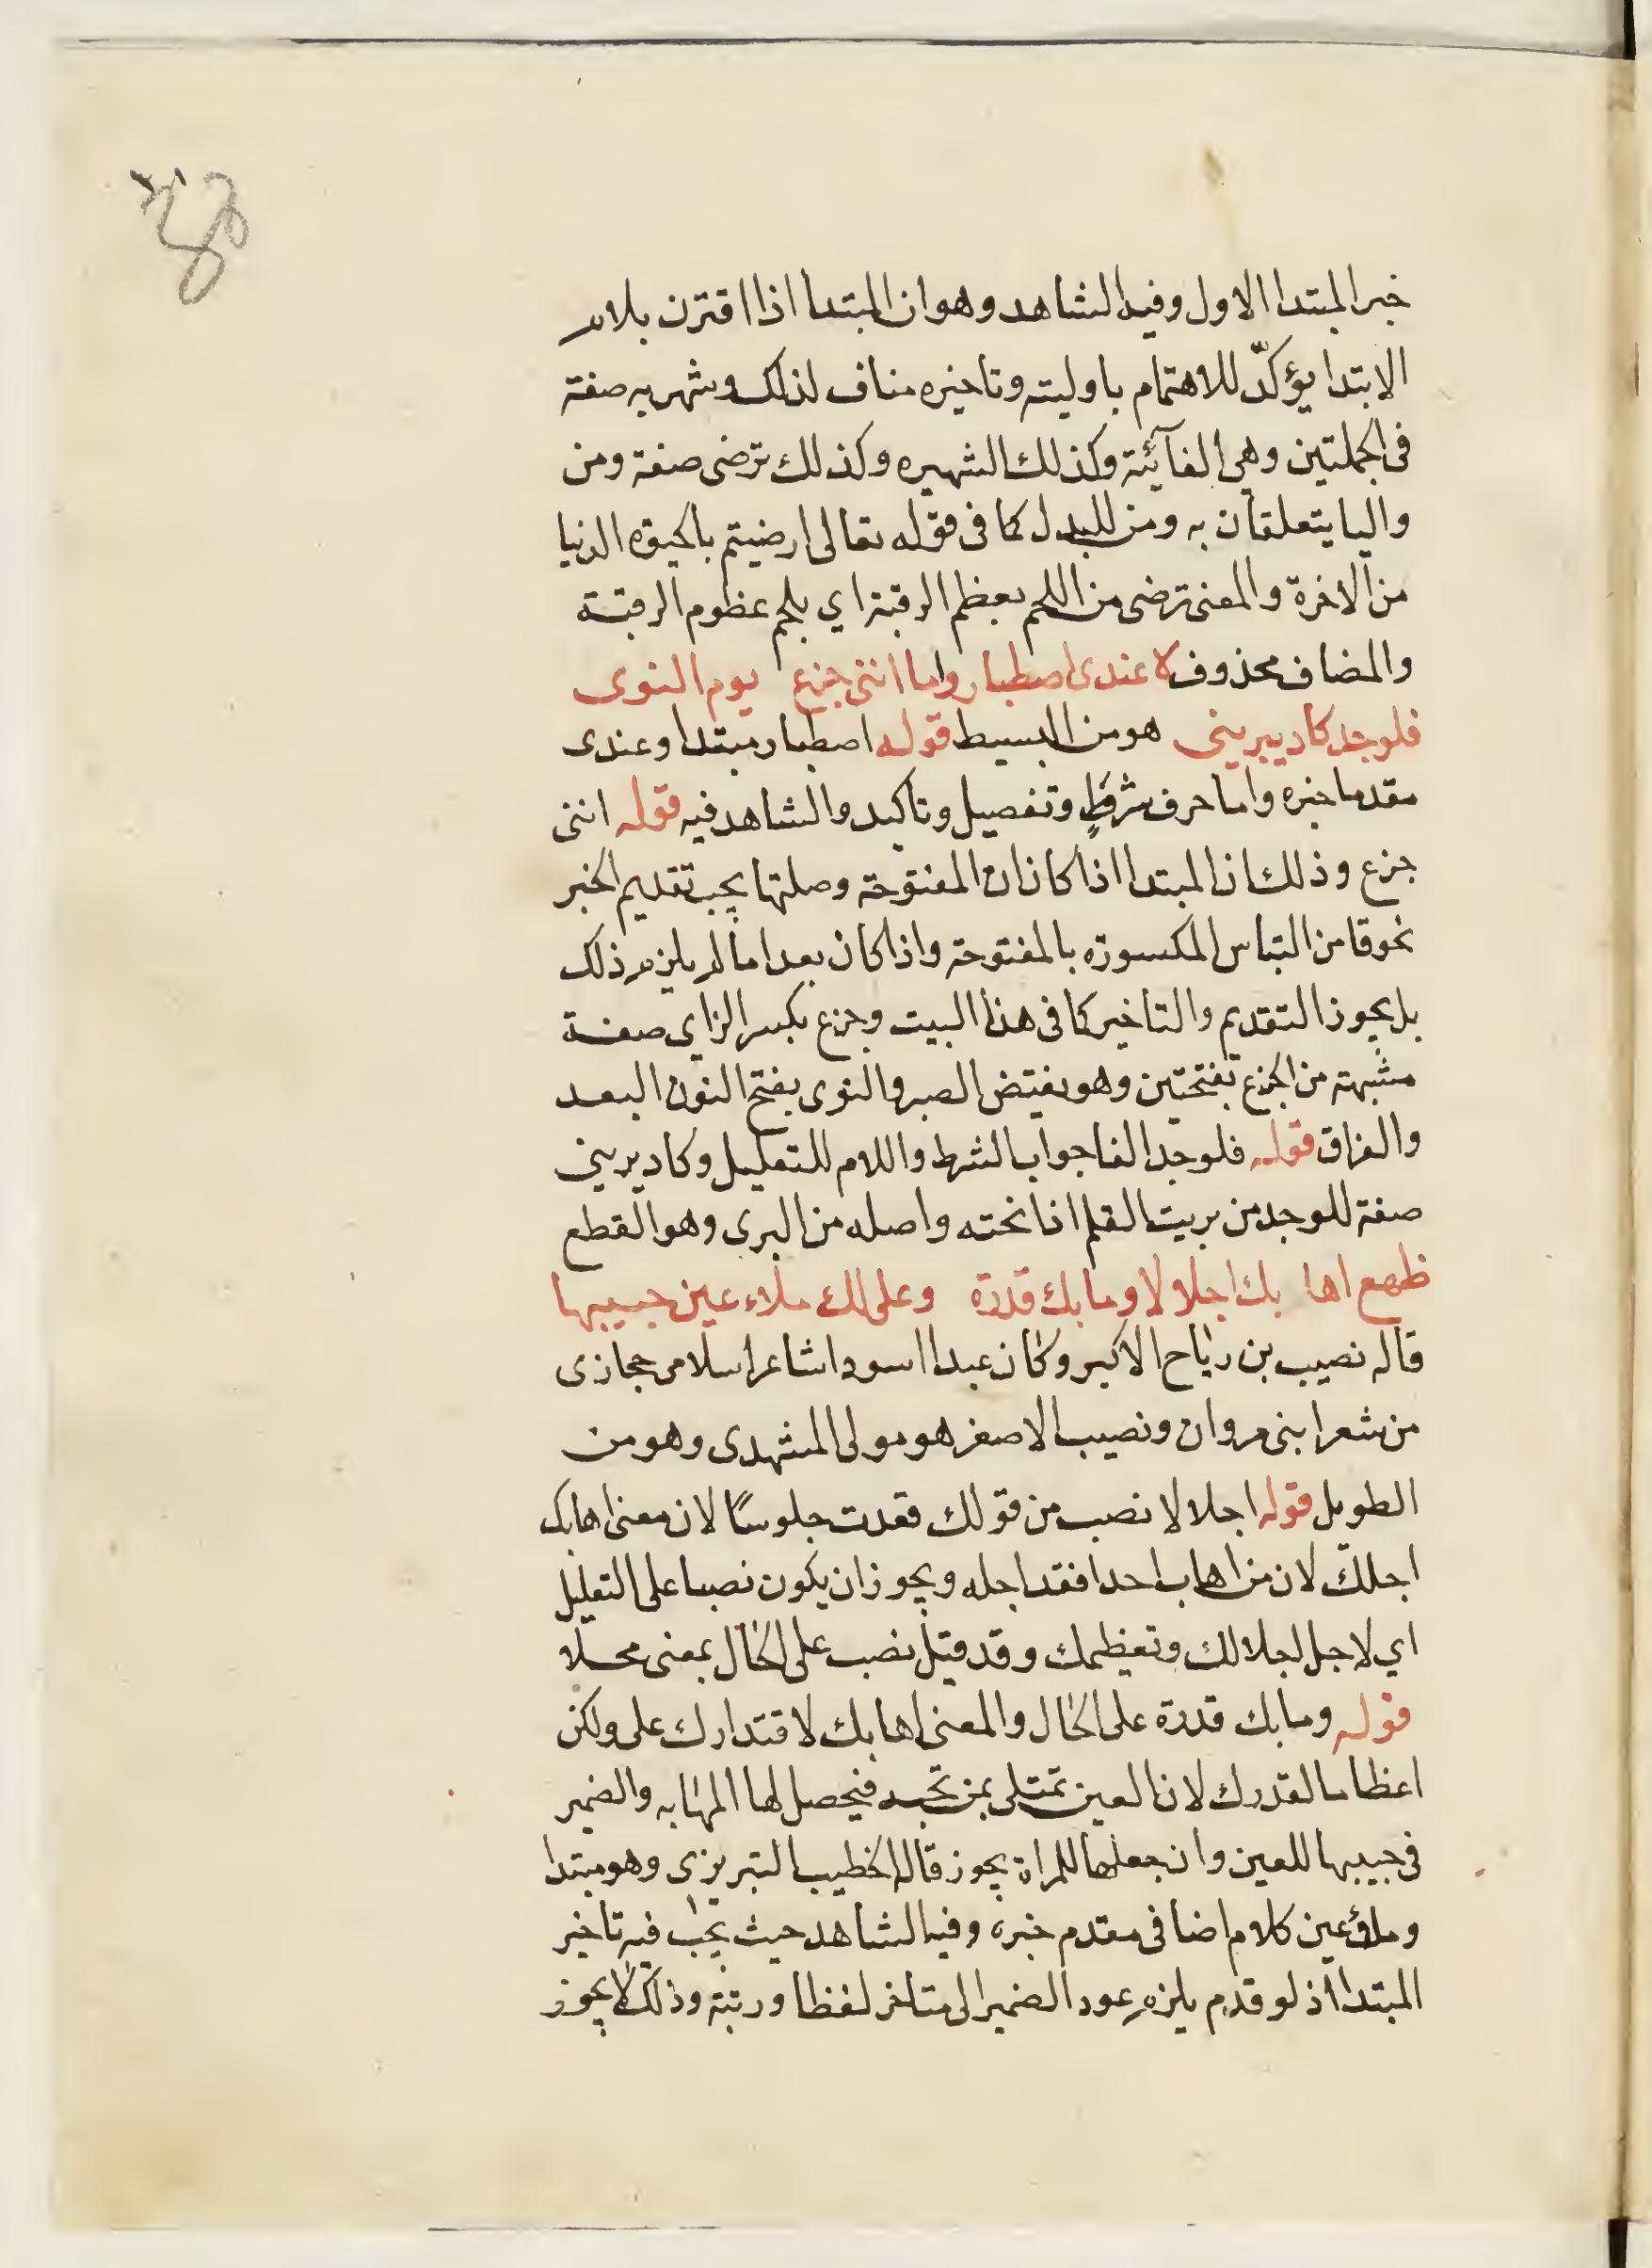 خبر المبتدا الاول وفيه الشاهد وهو ان المبتدا اذا اقترن بلام
الابتدا يؤكد للاهتمام باوليته وتاخيره مناف لذلك وشهربه صفة
فى الجملتين وهى الفآئية وكذلك الشهيره وكذلك ترضى صفة ومن
واليا يتعلقان به ومن للبدل كما فى قوله تعالى ارضيتم بالحيوة الدنيا
من الاخرة والمعنى ترضى من اللحم بعظم الرقبة اي بلحم عظوم الرقبة
والمضاف محذوف لا عندى اصطبار واما اننى جزع يوم النوى
فلوجد كاد يبرينى هو من البسيط قوله اصطبار مبتدا وعندى
مقدما خبره واما حرف شرط وتفصيل وتاكيد والشاهد فيه قوله اننى
جزع وذلك ان المبتدا اذا كان ان المفتوحة وصلتها يجب تقديم الخبر
خوفا من التباس المكسورة بالمفتوحة واذا كان بعد اما لم يلزم ذلك
بل يجوز التقديم والتاخير كما فى هذا البيت وجزع بكسر الزاى صفة
مشبهة من الجزع بفتحتين وهو نقيض الصبر والنوى بفتح النون البعد
والفراق قوله فلوجد الفا جواب الشرط واللام للتعليل وكاد يبرينى
صفة للوجد من بريت القلم اذا نحته واصله من البرى وهو القطع
ظهع اها بك اجلالا وما بك قدرة وعلى لك ملاء عين حبيبها
قاله نصيب بن رياح الاكبر وكان عبدا اسود شاعر اسلامى حجازى
من شعرا بنى مروان ونصيب الاصغر هو مولى المشهدى وهو من
الطويل قوله اجلالا نصب من قولك قعدت جلوسا لان معنى اهابك
اجلك لان من اهاب احدا فقد اجله ويجوز ان يكون نصبا على التعليل
اي لاجل اجلالك وتعظيمك وقد قيل نصب على الحال بمعنى مجلا
قوله وما بك قدرة على الحال والمعنى اهابك لا قتدارك على ولكن
اعظاما لقدرك لان العين تمتلى بمن تحبه فيحصل لها المهابه والضمير
فى حبيبها للعين وان جعلها للمراة يجوز قاله الخطيب التبريزى وهو مبتدا
وملؤ عين كلام اضافى مقدم خبره وفيه الشاهد حيث يجب فيه تاخير
المبتدا اذ لو قدم يلزم عود الضمير الى متاخر لفظا ورتبة وذلك لا يجوز